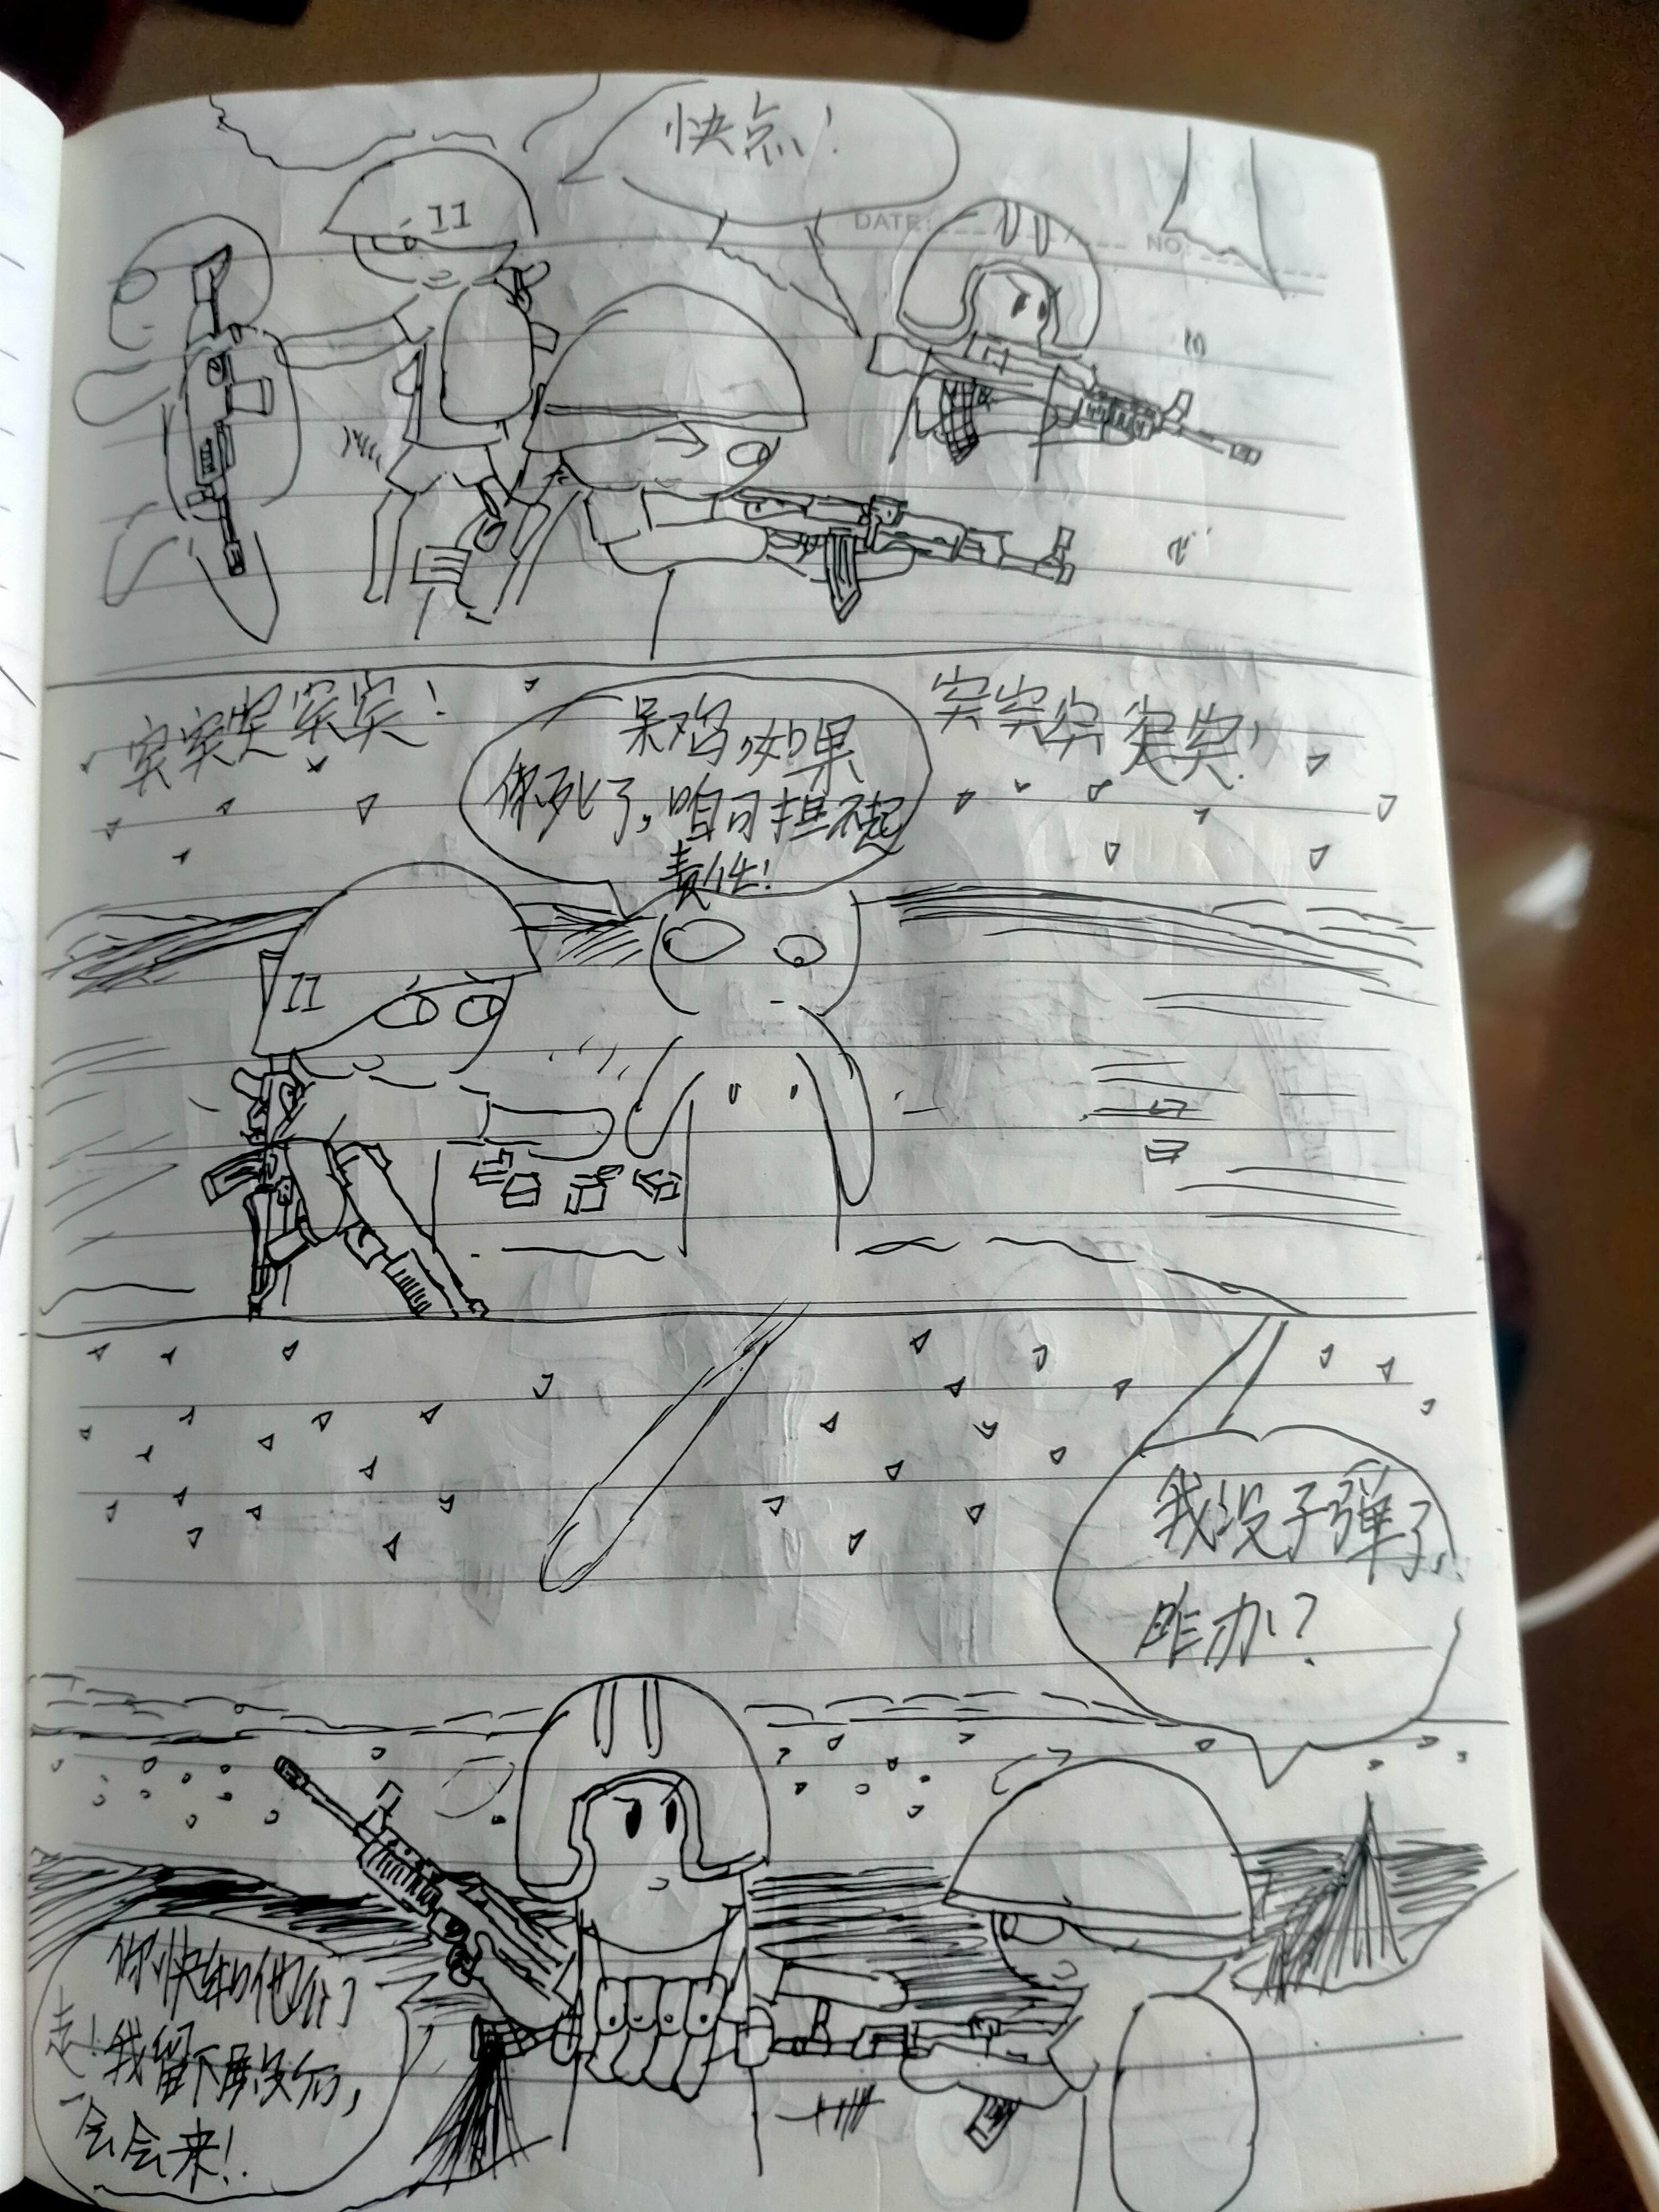 快点!
DATE:
NO:
11
突突突突突!
呆陷,如果
你死了,咱可担不起
责任!
突突突突突!
11
我没子弹了,
咋办?
你快和他们
走!我留下
一会会来!